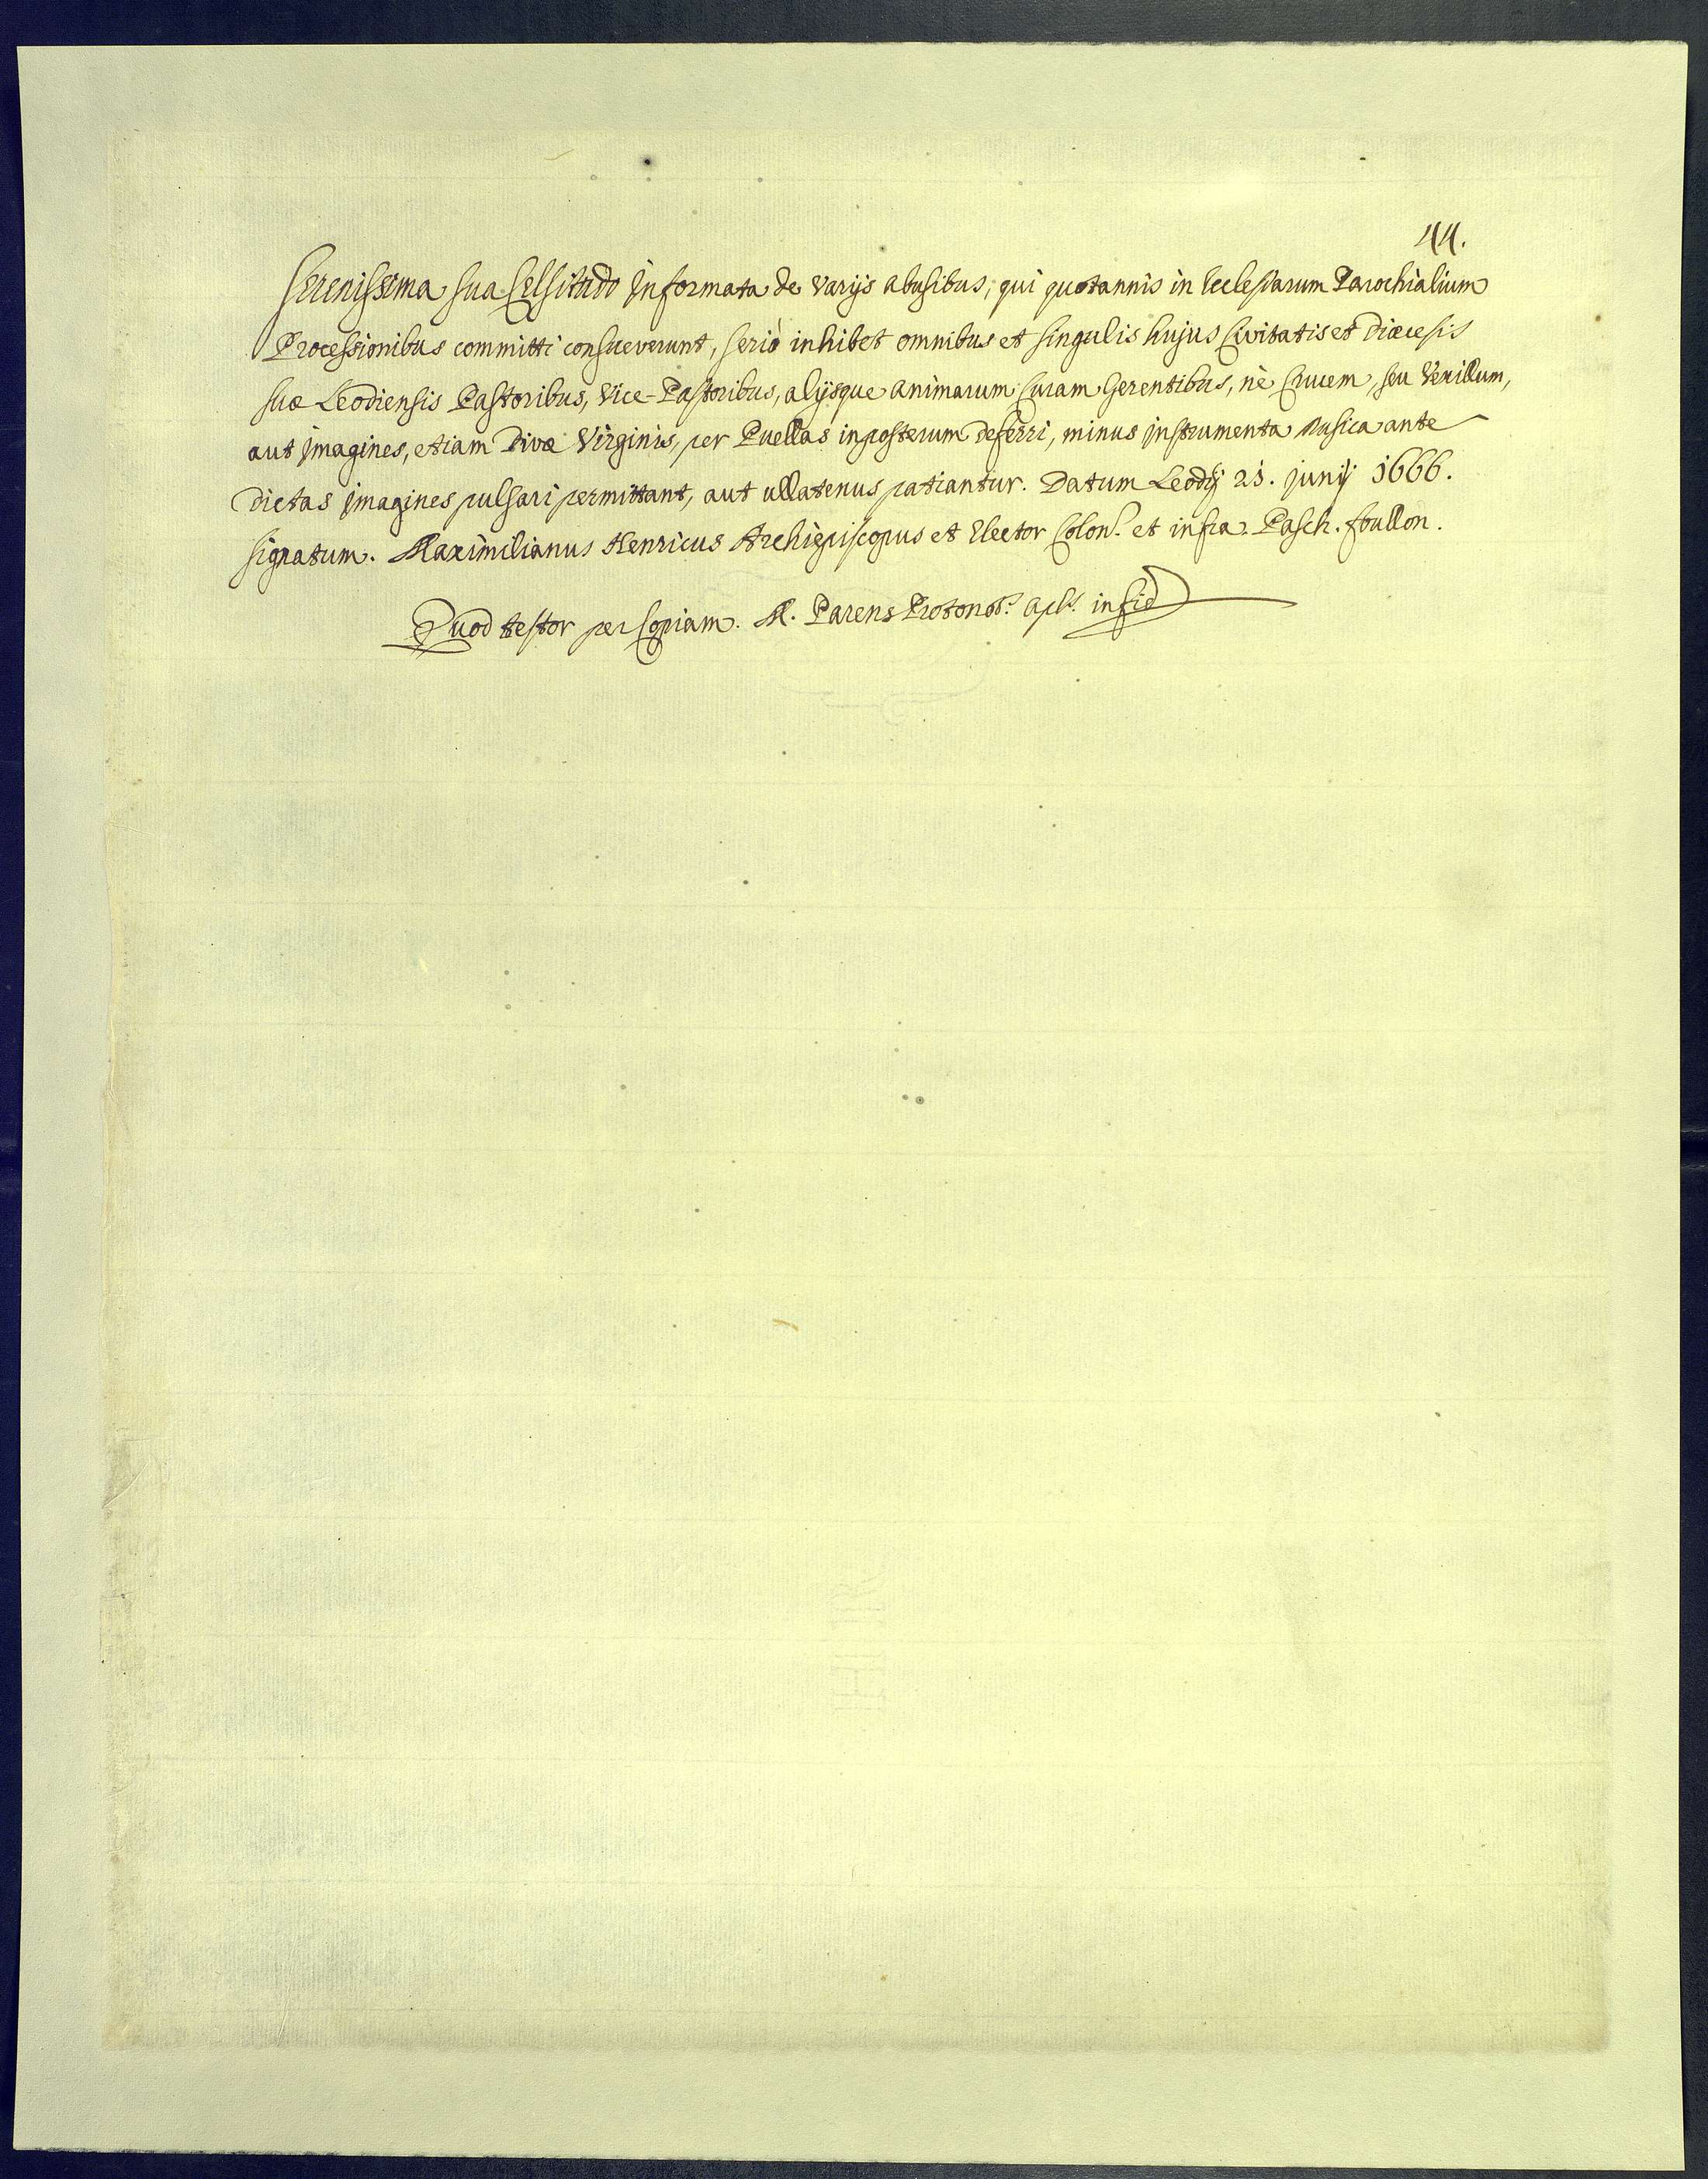 44.
Serenissima sua Celsitudo informata de varijs abusibus, qui quotannis in Ecclesiarum Parochialium
Processionibus committi consueverunt, seriò inhibet omnibus et singulis hujus Civitatis et Diœcesis
suæ Leodiensis Pastoribus, Vice-Pastoribus, alijsque animarum Curam Gerentibus, nè Crucem, seu Vexillum,
aut imagines, etiam Divæ Virginis, per Puellas inposterum deferri, minus instrumenta Musica ante
dictas imagines pulsari permittant, aut ullatenus patiantur. Datum Leodij 21. junij 1666.
signatum. Maximilianus Henricus Archiepiscopus et Elector Colon. et infra. Pasch. foullon.
Quod testor per Copiam. M. Parens Protonot. aplis. in fid